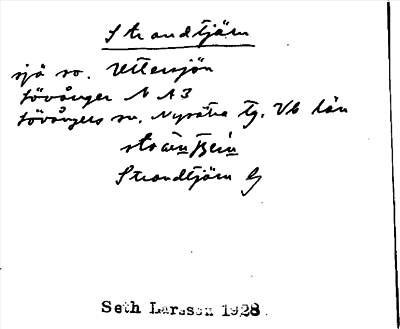 Strandtjärn
sjö so. Uttersjön
Lövånger N A3
Lövångers sn. Nysätra tg. Vb län
Strandtjärn Gj
Seth Larsson 1928.